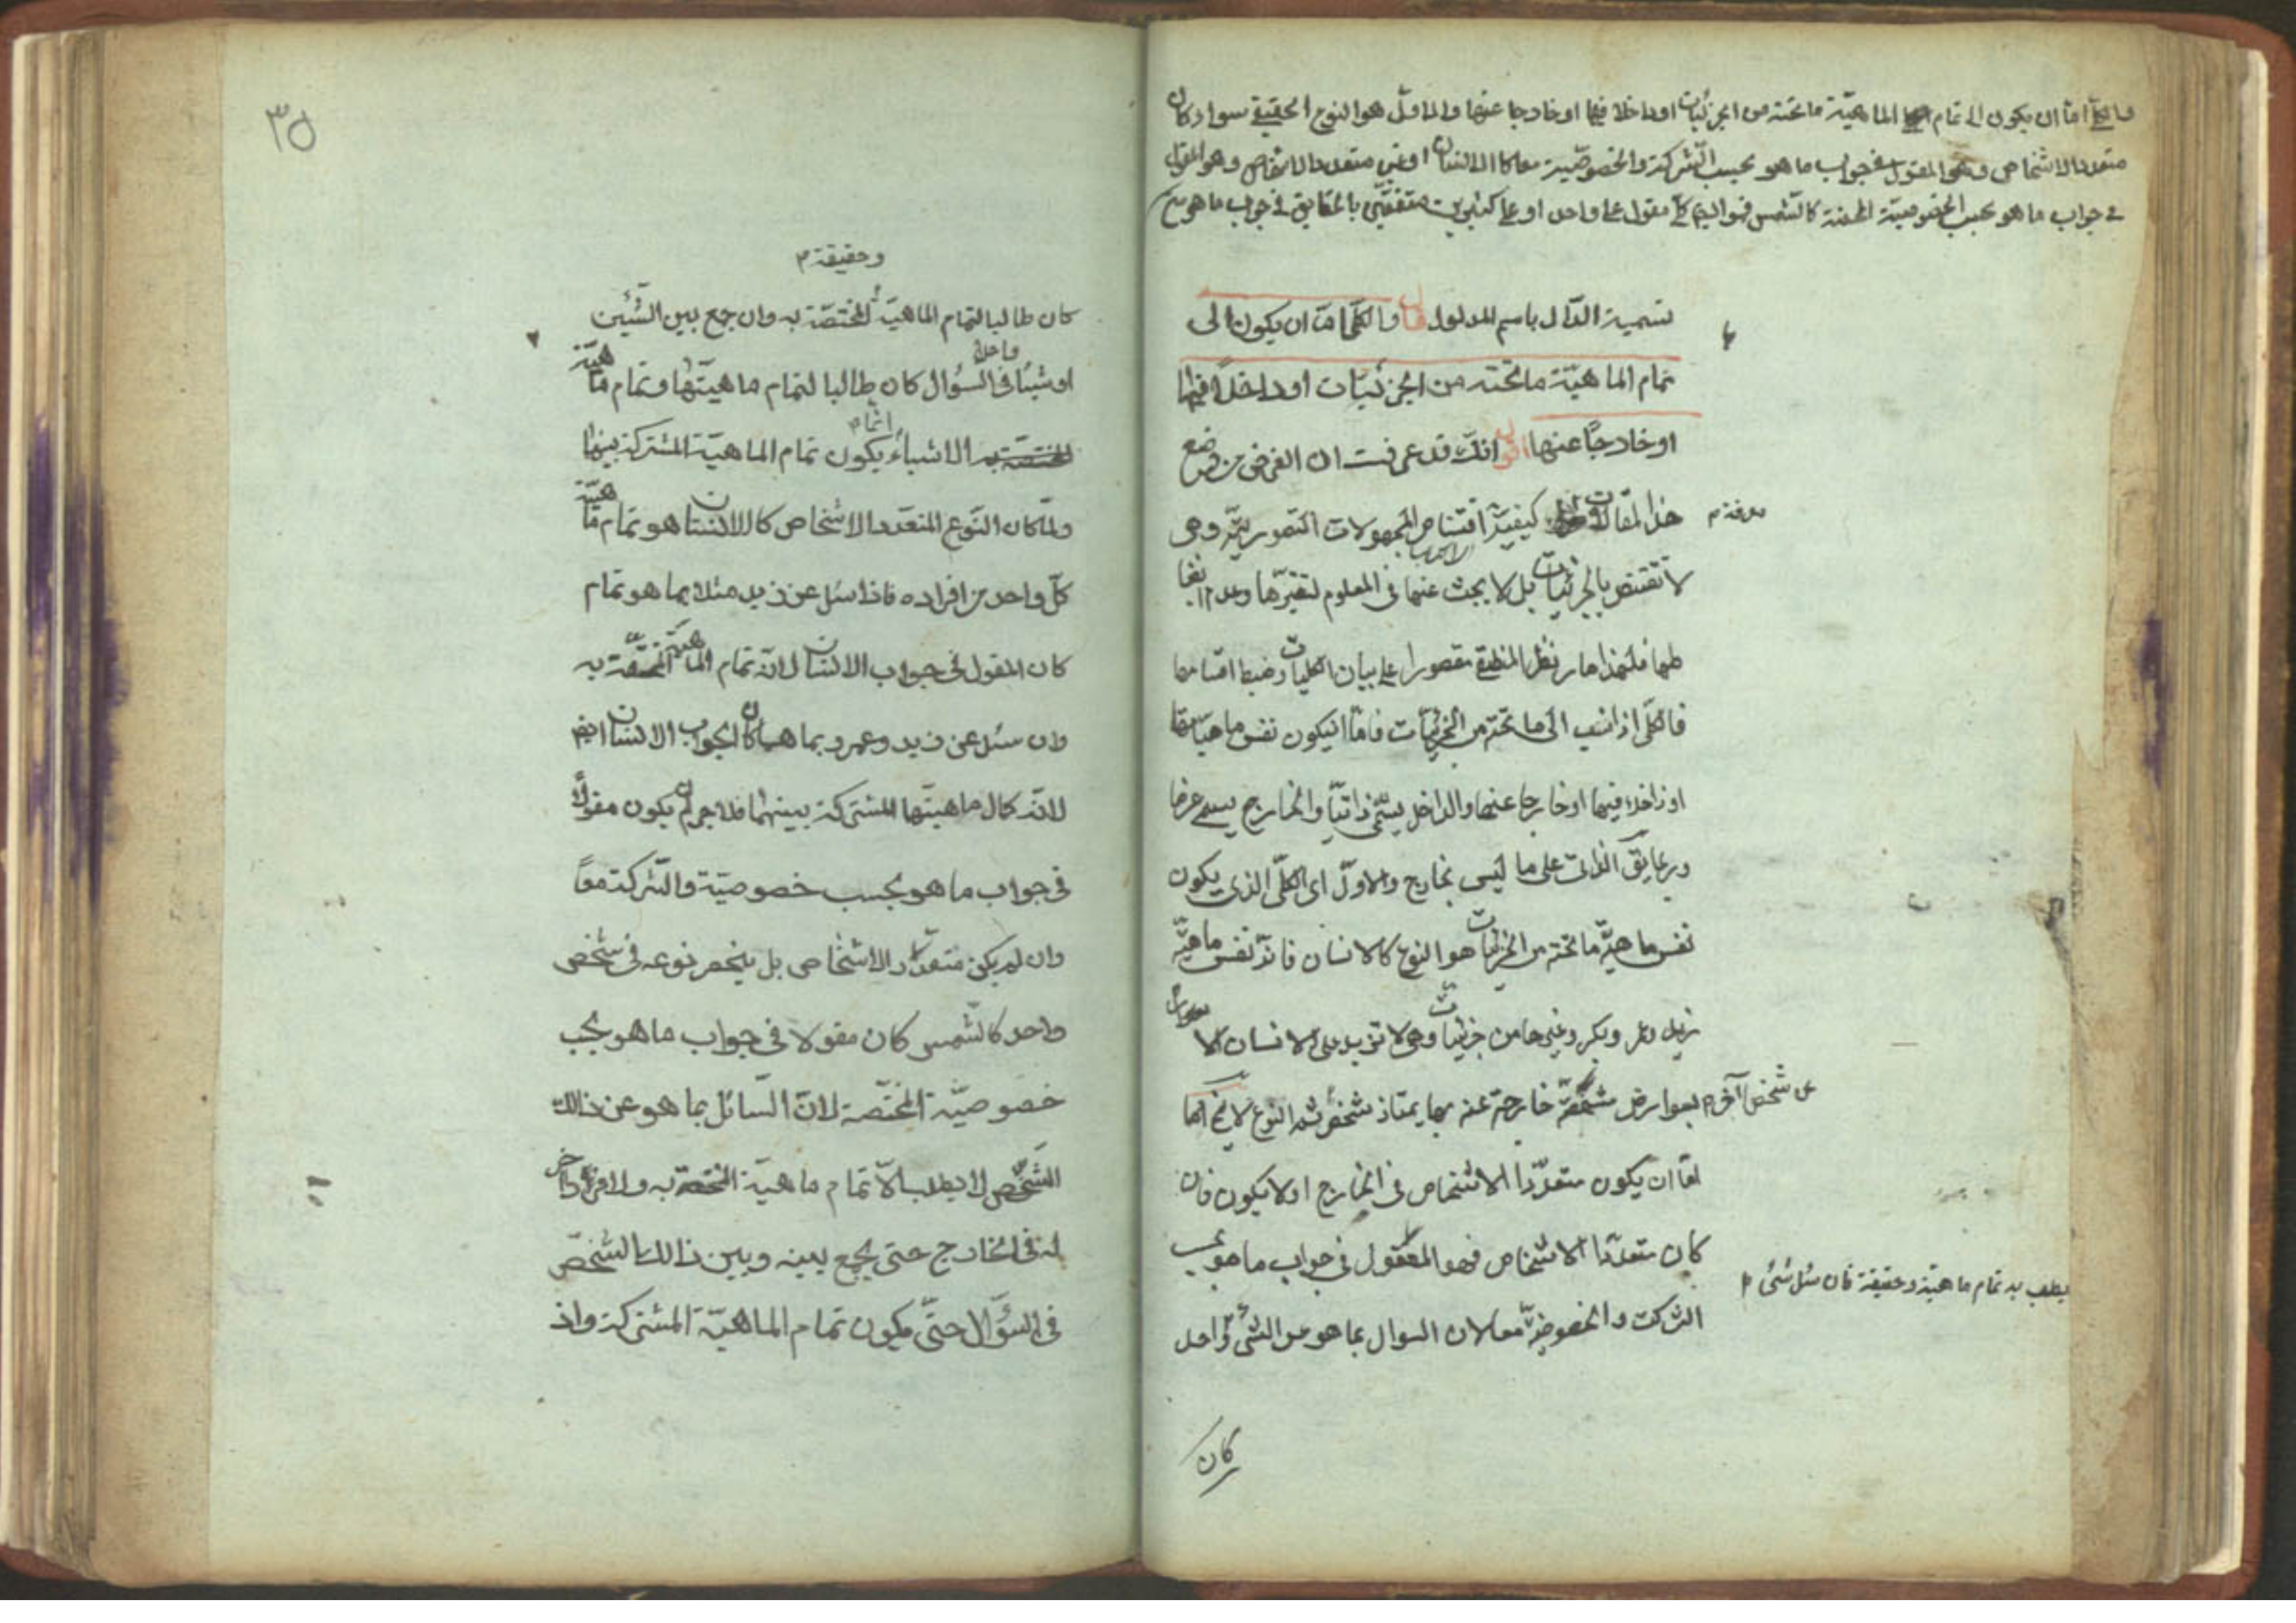 والكلي اما ان يكون الى تمام الماهية ما تحته من الجزئيات او داخلا فيها او خارجا عنها والاول هو النوع الحقيقي سواء كان
متعدد الاشخاص وهو المقول في جواب ما هو بحسب الشركة والخصوصية معا كالانسان او غير متعدد الاشخاص وهو المقول
في جواب ما هو بحسب الخصوصية المحضة كالشمس فهو اذن كلي مقول على واحد او على كثيرين متفقين بالحقايق في جواب ما هو
تسمية الدّال باسم المدلول قال والكلّي امّا ان يكون الى
تمام الماهيّة ما تحته من الجزئيّات او داخلاً فيها
او خارجًا عنها اقول انّك قد عرفت ان الغرض من وضع
هذا المقالة معرفة كيفيّة اقتناص المجهولات التصوريّة وهي
لا تقتنص بالجزئيات بل لا يبحث عنها في العلوم لتغيّرها وعدم انضباطها
فلهذا صار نظر المنطقي مقصورا على بيان الكليات وضبط اقسامها
فالكلّي اذا نسب الى ما تحته من الجزئيّات فامّا ان يكون نفس ماهيّاتها
او داخلا فيها او خارجا عنها والداخل يسمّى ذاتيّا والخارج يسمى عرضيا
وربما يق الذاتي على ما ليس بخارج والاوّل اى الكلّي الذي يكون
نفس ماهيّة ما تحته من الجزئيات هو النوع كالانسان فانّه نفس ماهيّة
زيد وعمر وبكر وغيرها من جزئيات وهي لا تزيد على الانسان الا
بعوارض مشخّصة خارجة عنه بها يمتاز شخص عن شخص آخر ثم النوع لا يخ
امّا ان يكون متعدّد الاشخاص في الخارج او لا يكون فان
كان متعدّد الاشخاص فهو المقول في جواب ما هو بحسب
الشركت والخصوصيّة معا لان السوال بما هو عن الشئ
يطلب به تمام ماهيّة وحقيقة فان سئل شئ واحد
كان
٣٥
كان طالبا لتمام الماهيّة وحقيقة المختصّة به وان جمع بين الشيئين
او شيئا واحدا في السؤال كان طالبا لتمام ماهيّتها وتمام ماهيّة
الاشياء انما يكون تمام الماهيّة المشتركة بينها
ولمّا كان النّوع المتعدّد الاشخاص كالانسان هو تمام ماهيّة
كلّ واحد من افراده فاذا سئل عن زيد مثلا بما هو تمام
كان المقول في جواب الانسان لانّه تمام الماهيّة المختصّة به
وان سئل عن زيد وعمرو بما هما كان الجواب الانسان ايضا
لانّه كمال ماهيتّها المشتركة بينهما فلا جرم يكون مقولاً
في جواب ما هو بحسب خصوصيّة والشركت معًا
وان لم يكن متعدّد الاشخاص بل ينحصر نوعه في شخص
واحد كالشّمس كان مقولا في جواب ما هو بحسب
خصوصيّة المختّصة لانّ السّائل بما هو عن ذالك
الشّخص لا يطلب الّا تمام ماهيّة المختصّة به ولا فرد آخر
له في الخارج حتى يجمع بينه وبين ذالك الشخصّ
في السؤال حتّى يكون تمام الماهيّة المشتركة واذ